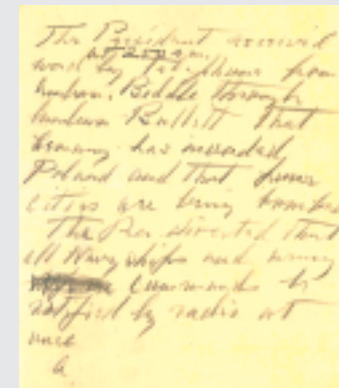 The President received
at 2:50 a.m.
word by telephone from
Biddle through
Bullitt that
Germany has invaded
Poland and that four
cities are being bombed
The Pres directed that
all Navy ships and army
commands be
notified by radio at
once